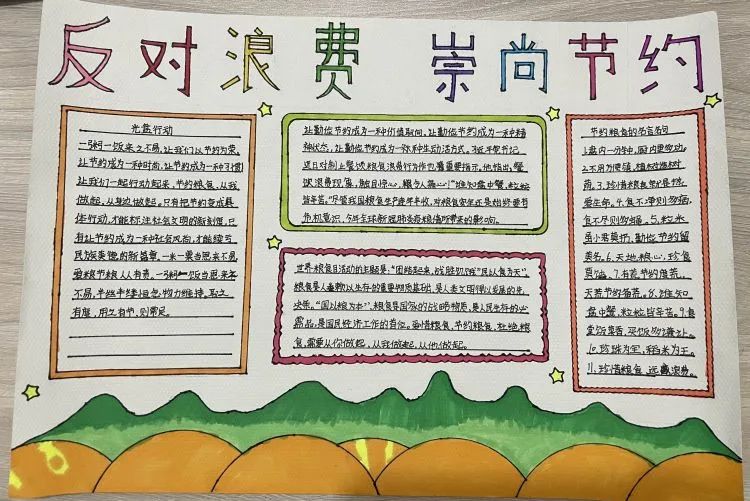 反对浪费 崇尚节约
光盘行动
一粥一饭来之不易,让我们以节约为荣,
让节约成为一种时尚,让节约成为一种习惯!
让我们一起行动起来,节约粮食,从我
做起,从身边做起。只有把节约变成具
体行动,才能标注社会文明的新刻度,只
有让节约成为一种社会风尚,才能续写
民族美德的新篇章,一米一粟当思来不易
爱粮节粮人人有责。一粥一饭当思来之不
易,半丝半缕恒念物力维持。取之
有度,用之有节,则常足。
让勤俭节约成为一种价值取向,让勤俭节约成为一种精
神状态,让勤俭节约成为一种生动活方式。习近平书记
近日对制止餐饮粮食浪费行为作也着重要指示。他指出,餐
饮浪费现象,触目惊心,令人痛心!"谁知盘中餐,粒粒
皆辛苦。"尽管我国粮食生产连年丰收,对粮食安全还是始终要有
危机意识,今年全球新冠肺炎疫情所带来的影响。
世界粮食日活动的主题是:"团结起来,战胜饥饿"民以食为天",
粮食是人类赖以生存的重要物质基础,是人类文明得以发展的先
决条。"国以粮为本",粮食是国家的战略物资,是人民生存的必
需品,是国民经济工作的首位。珍惜粮食,节约粮食,杜绝粮
食,需要从你做起,从我做起,从他做起。
节约粮食的名言名句
1.盘内一分钟,田内
2.不用方便筷,植树
药。3.珍惜粮食
爱生命。4.食不净则勿病,
食不尽则勿
虽小君莫扔,勤俭节约留
美名。6.天地粮心,珍食
莫溢。7.有荒节约度荒,
无荒节约备荒。8.谁知
盘中餐,粒粒皆辛苦。9.食
堂饭菜香,买饭勿
10.珍珠为宝,稻米为王。
11.珍惜粮食,远离浪费。